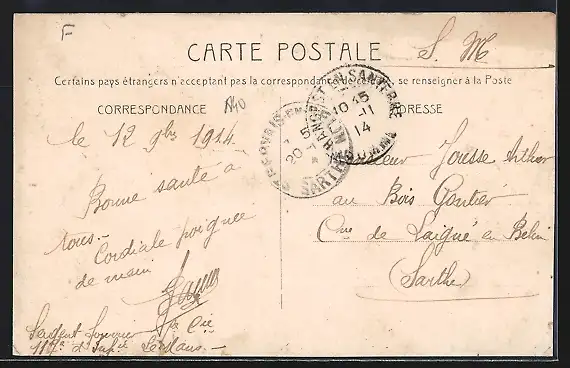 F
CARTE POSTALE
S. M
Certains pays étrangers n'acceptant pas la correspondance de , se renseigner à la Poste
CORRESPONDANCE
ADRESSE
HANGEST-EN-SANTERRE
10 45
-11
14
SOMME
ST GERVAIS-EN-BELIN
5
20
SARTHE
le 12 9bre 1914
Bonne santé à
tous.-
Cordiale poignée
de main
Sergent fourrier Cie
117e d'Infie Le Mans.-
Monsieur Jousse Arthur
au Bois Gautier
Cne de Laigné en Belin
(Sarthe)